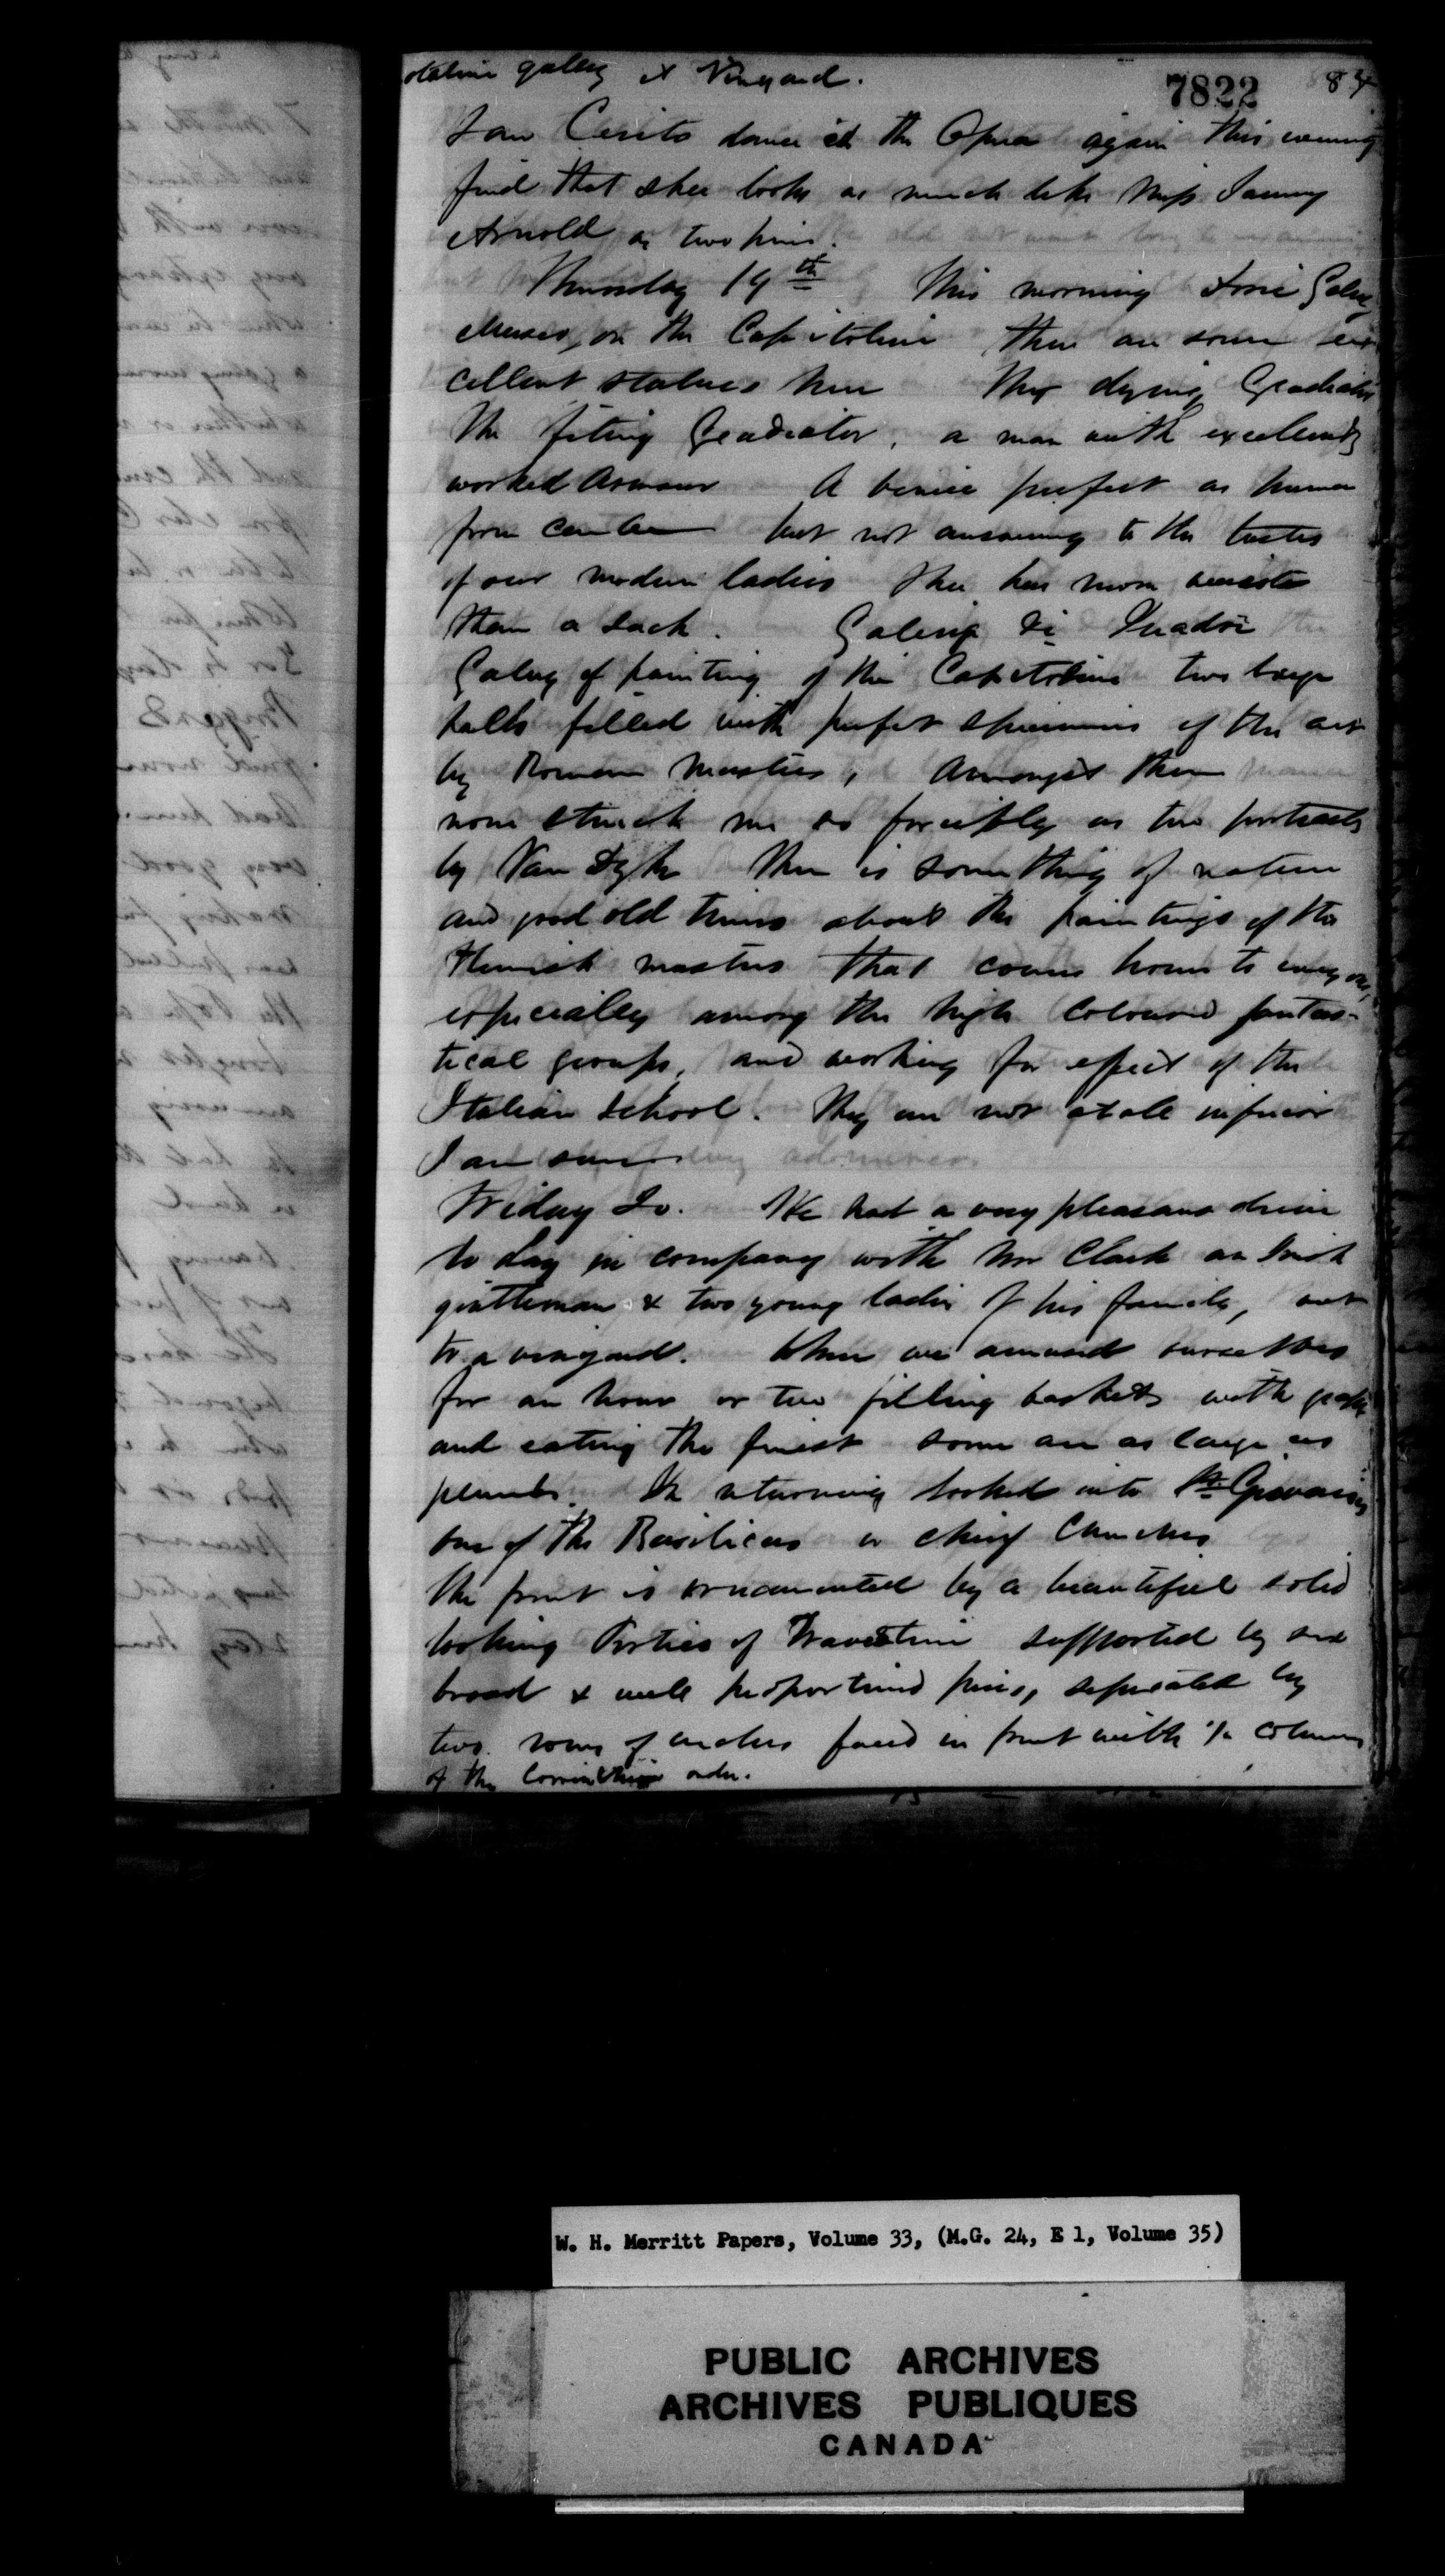 galery & Vinyard.
7822 84
Saw Cerito dance at the Opera again this evening
find that shee looks as much like Miss Fanny
Arnold as two pins.
Thursday 19th This morning
on the Capitoline there are some ex
cellent statues here The dying Gladiator
The fiting Gladiator, a man with excellently
worked Armour A venice perfect as human
form can be but not answering to the tastes
of our modern ladies Shee has more waiste
than a sack. Galeria di Quadri
Galery of painting of the Capitoline two large
halls filled with perfect specimens of the art
by Roman Masters, Amongst them
none struck me so forcibly as two portraits
by Van Dyke There is something of nature
and good old times about the paintings of the
Flemish masters that comes home to every one,
especially among the high coloured fantas-
tical groups, and working for effect of the
Italian School. They are not atall inferior
I am sure
Friday 20. We had a very pleasant drive
to day in company with Mr Clark an Irish
gentleman & two young ladies of his family, out
to a vinyard. Where we amused ourselves
for an hour or two filling baskets with
and eating the finest some are as large as
plumbs. In returning looked into St Giovanni
one of the Basilicas or chief Churches
the front is ornamented by a beautiful solid
looking Portico of Travestine supported by six
broad & well proportined piers, seperated by
two rows of arches faced in front with ½ columns
of the Corinthian order.
W. H. Merritt Papers, Volume 33, (M.G. 24, E 1, Volume 35)
PUBLIC ARCHIVES
ARCHIVES PUBLIQUES
CANADA